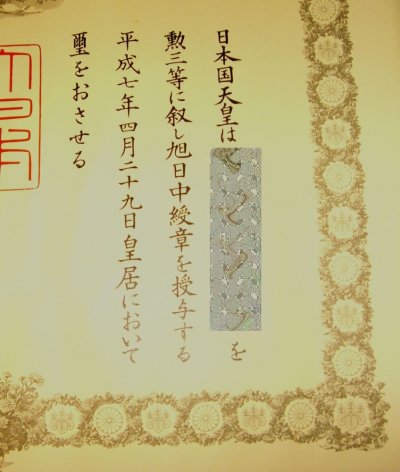 日本国天皇は
を
勲三等に叙し旭日中綬章を授与する
平成七年四月二十九日皇居において
璽をおさせる